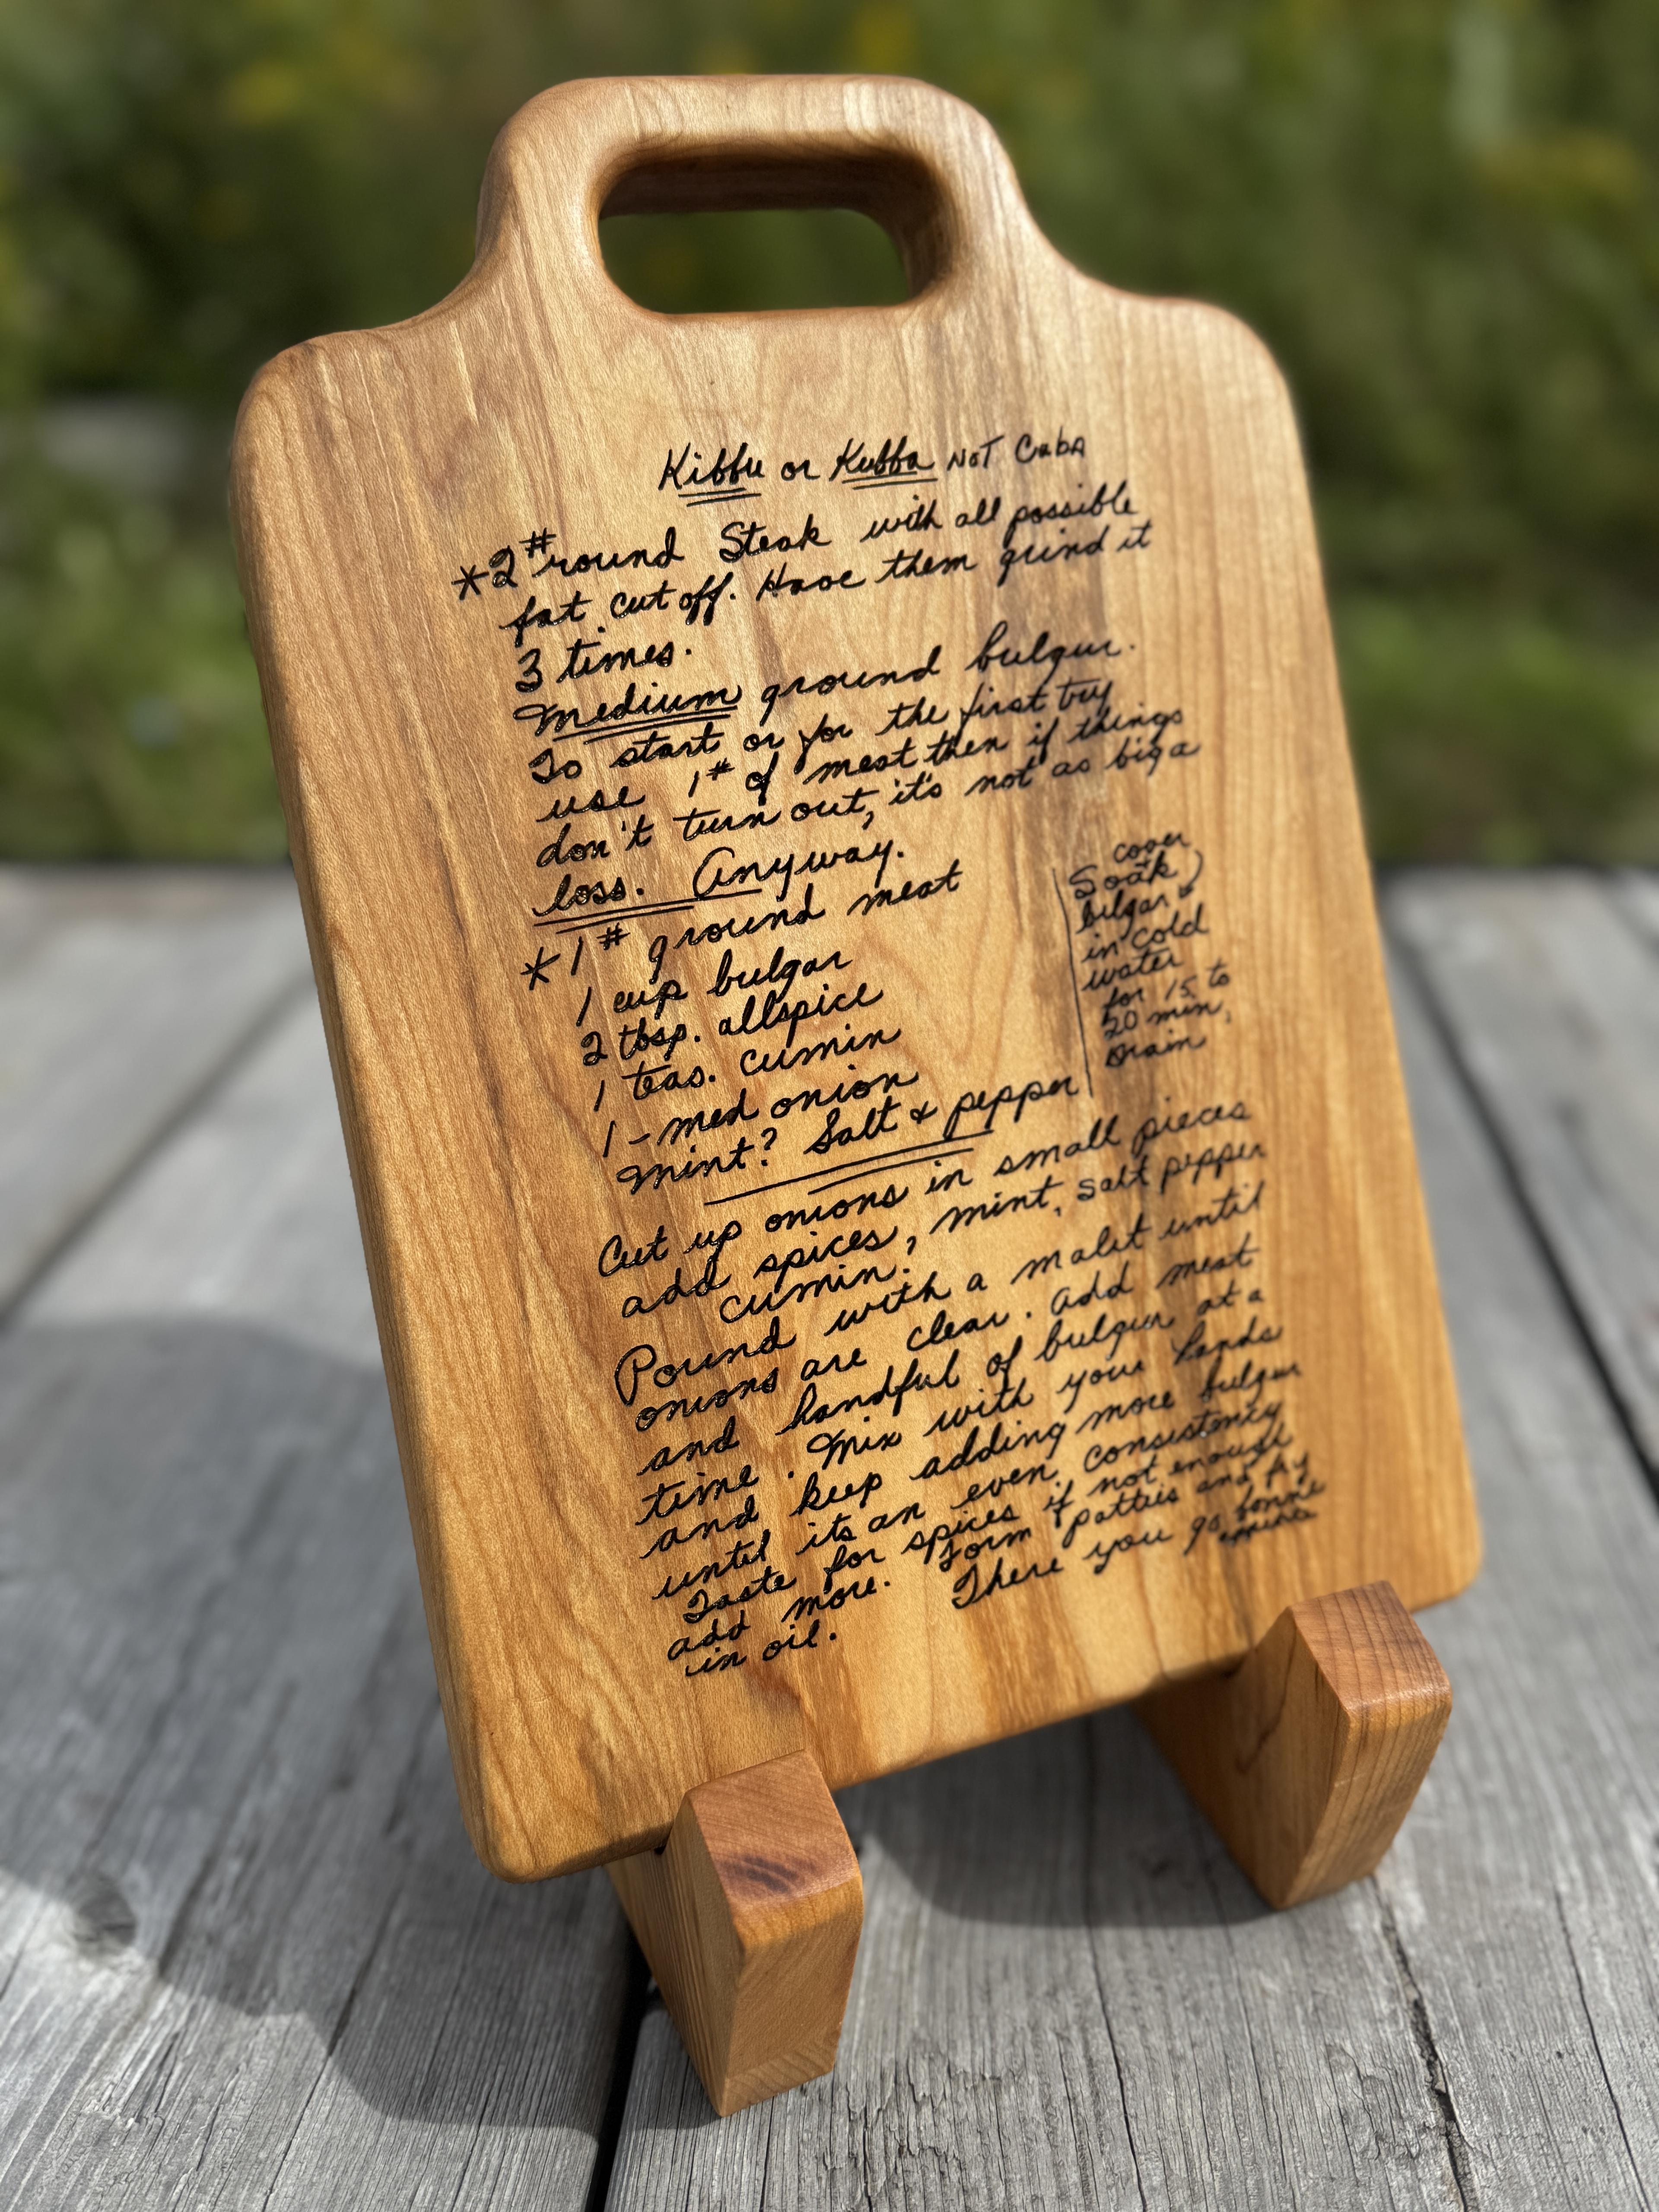 Kibbu or Kubba NOT Cuba
*2# round Steak with all possible
fat cut off. Have them grind it
3 times.
Medium ground bulgur.
To start or for the first try
use 1# of meat then if things
don't turn out, it's not as big a
loss. Anyway.
*1# ground meat
1 cup bulgar
2 tbsp. allspice
1 teas. cumin
1 - med onion
Mint? Salt & pepper
cover
Soak
bulgar
in cold
water
for 15 to
20 min.
Drain
Cut up onions in small pieces
add spices, mint, salt pepper
cumin.
Pound with a malit until
onions are clear. Add meat
and handful of bulgur at a
time. Mix with your hands
and keep adding more bulgur
until its an even consistency
Taste for spices if not enough
add more. Form patties and fry
in oil.
There you go bonne